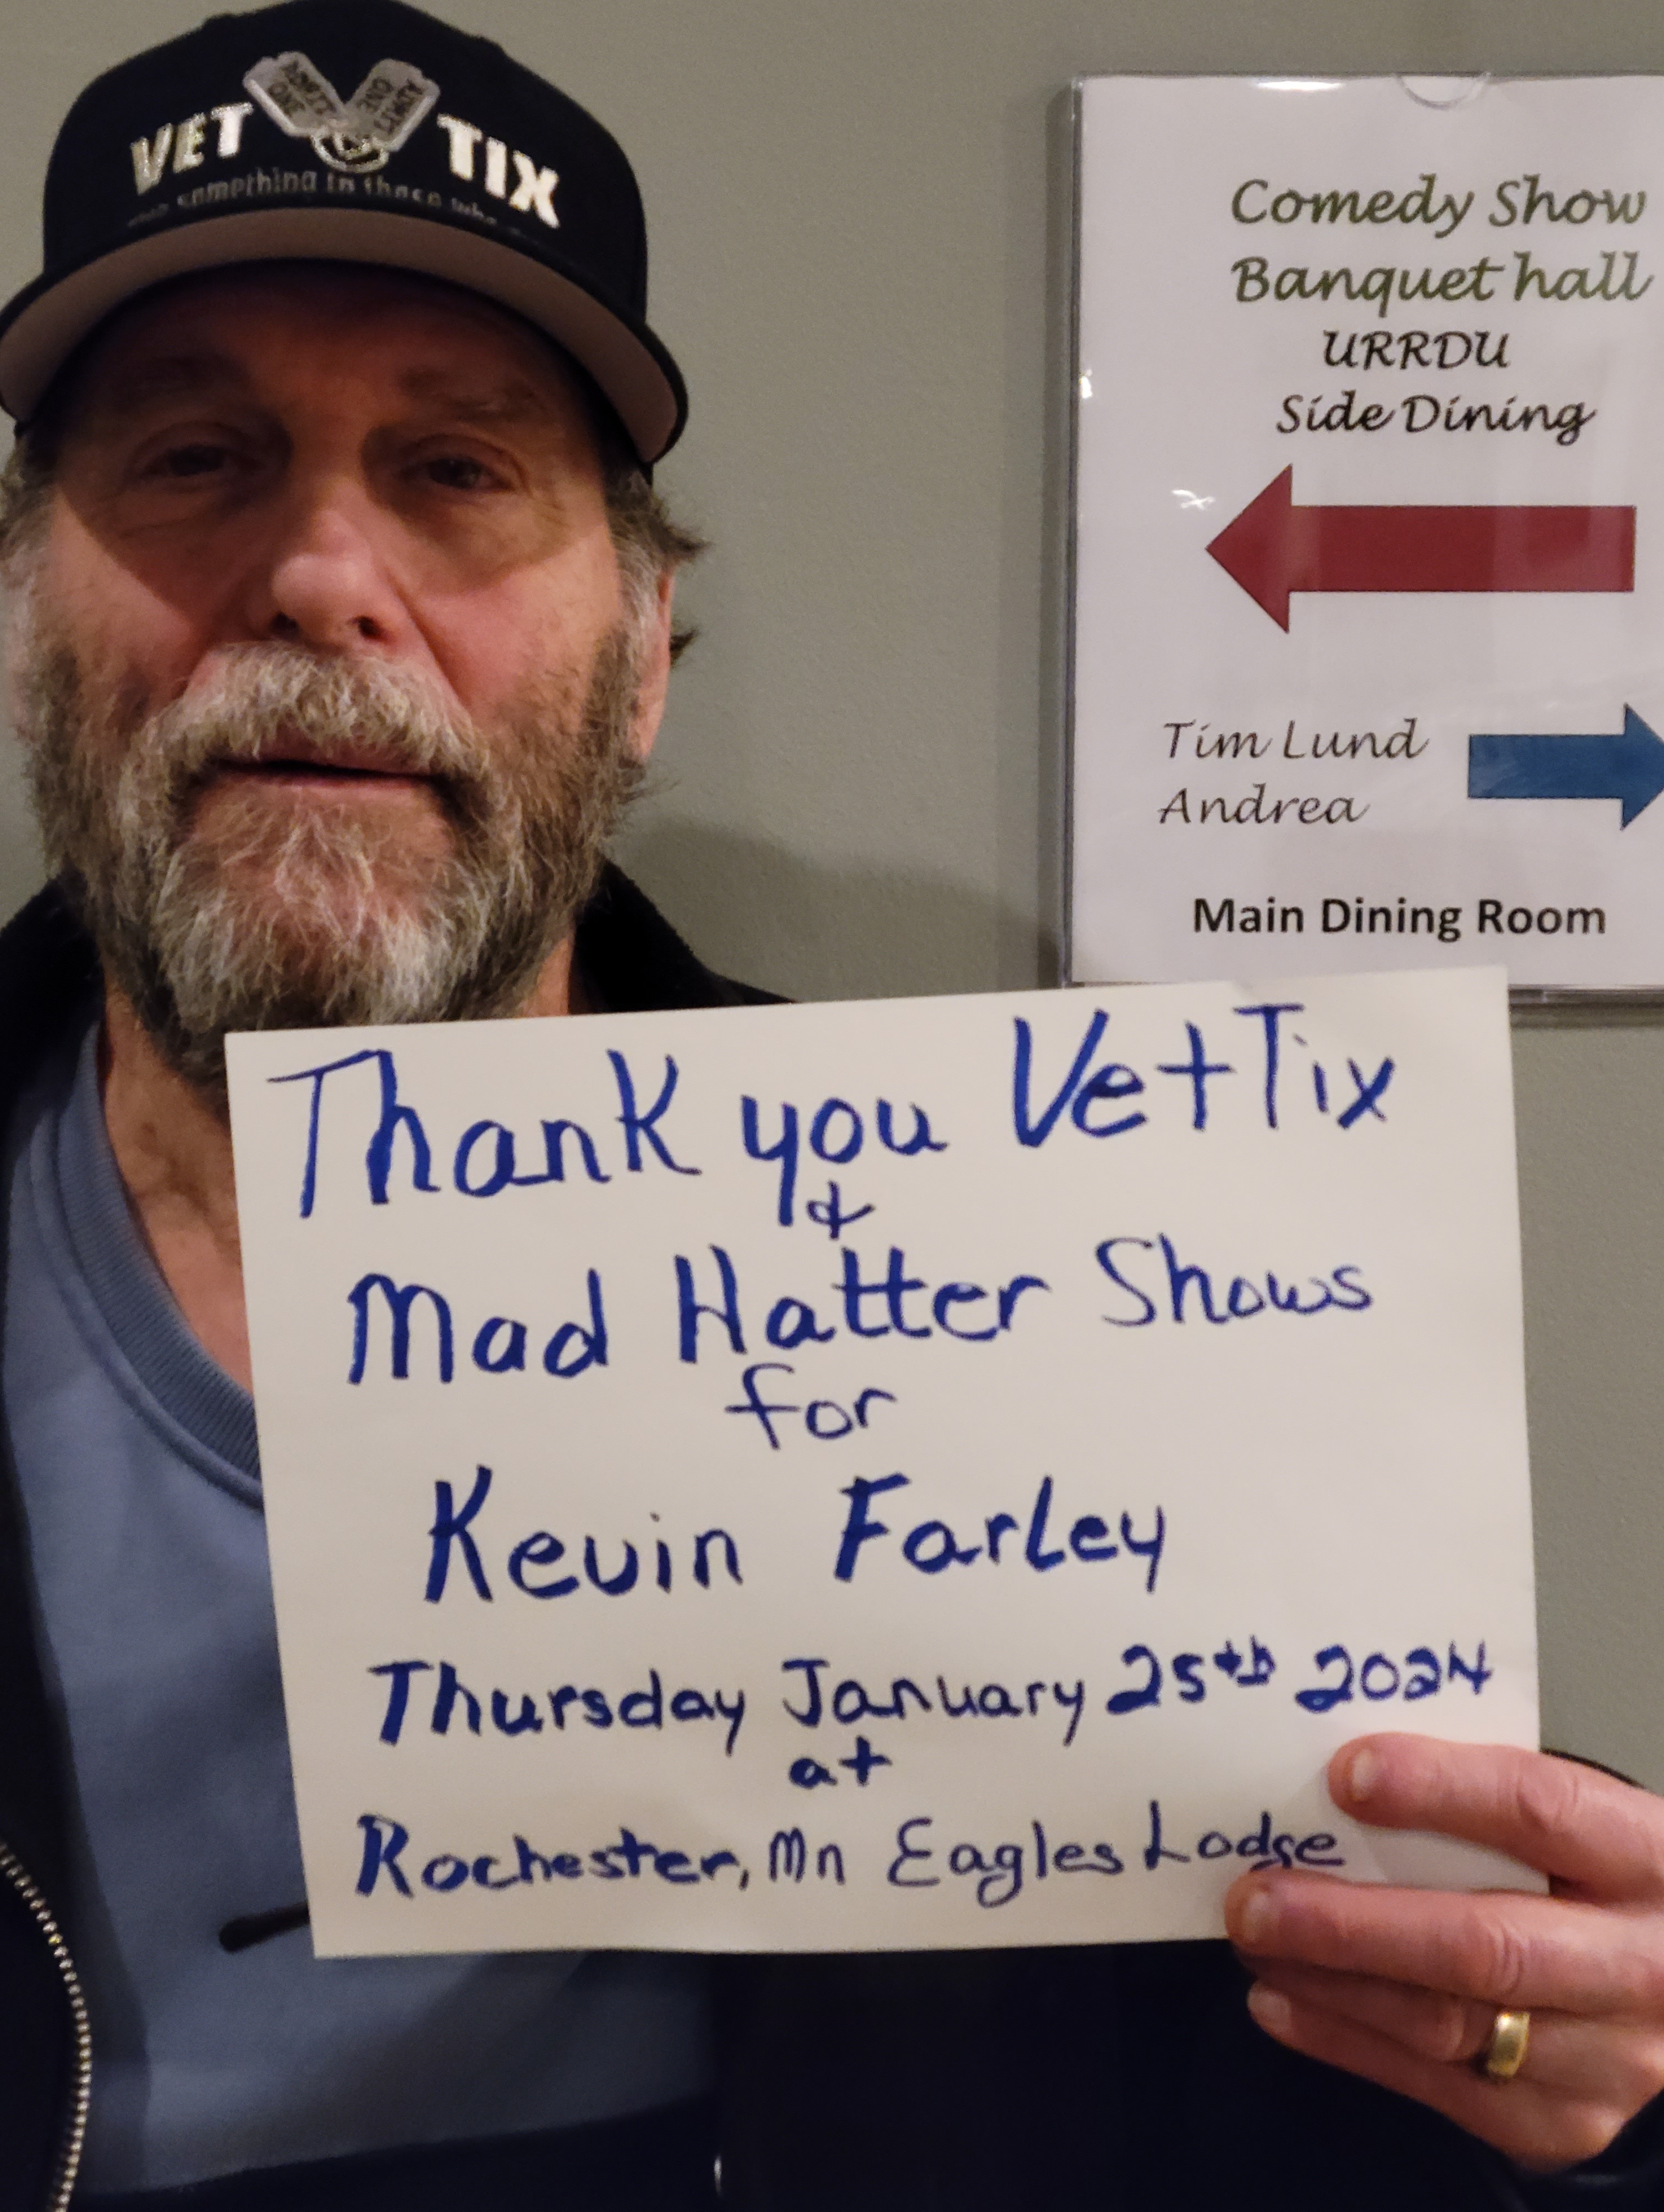 VET TIX
ADMIT ONE
2ND LIMIT
something to those who
Comedy Show
Banquet hall
URRDU
Side Dining
Tim Lund
Andrea
Main Dining Room
Thank you VetTix
&
Mad Hatter Shows
for
Kevin Farley
Thursday January 25th 2024
at
Rochester, Mn Eagles Lodge